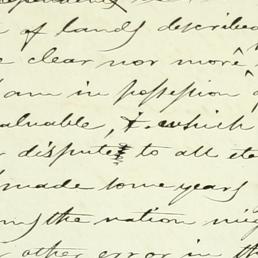 of lands described
clear nor more
am in possession
valuable, &. which
disputes to all
made some years
the nation
other error in the